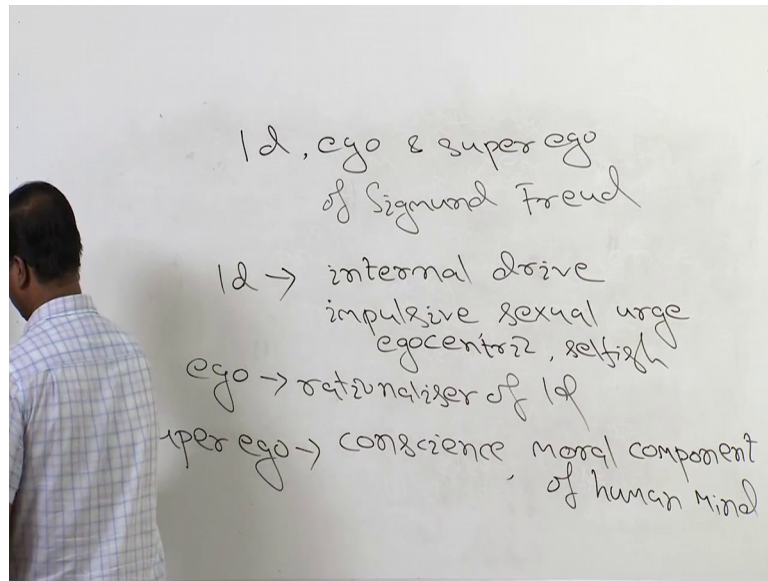 Id, ego & super ego
of Sigmund Freud
Id → internal drive
impulsive sexual urge
egocentric, selfish
ego → rationaliser of Id
uper ego → conscience, moral component
of human mind